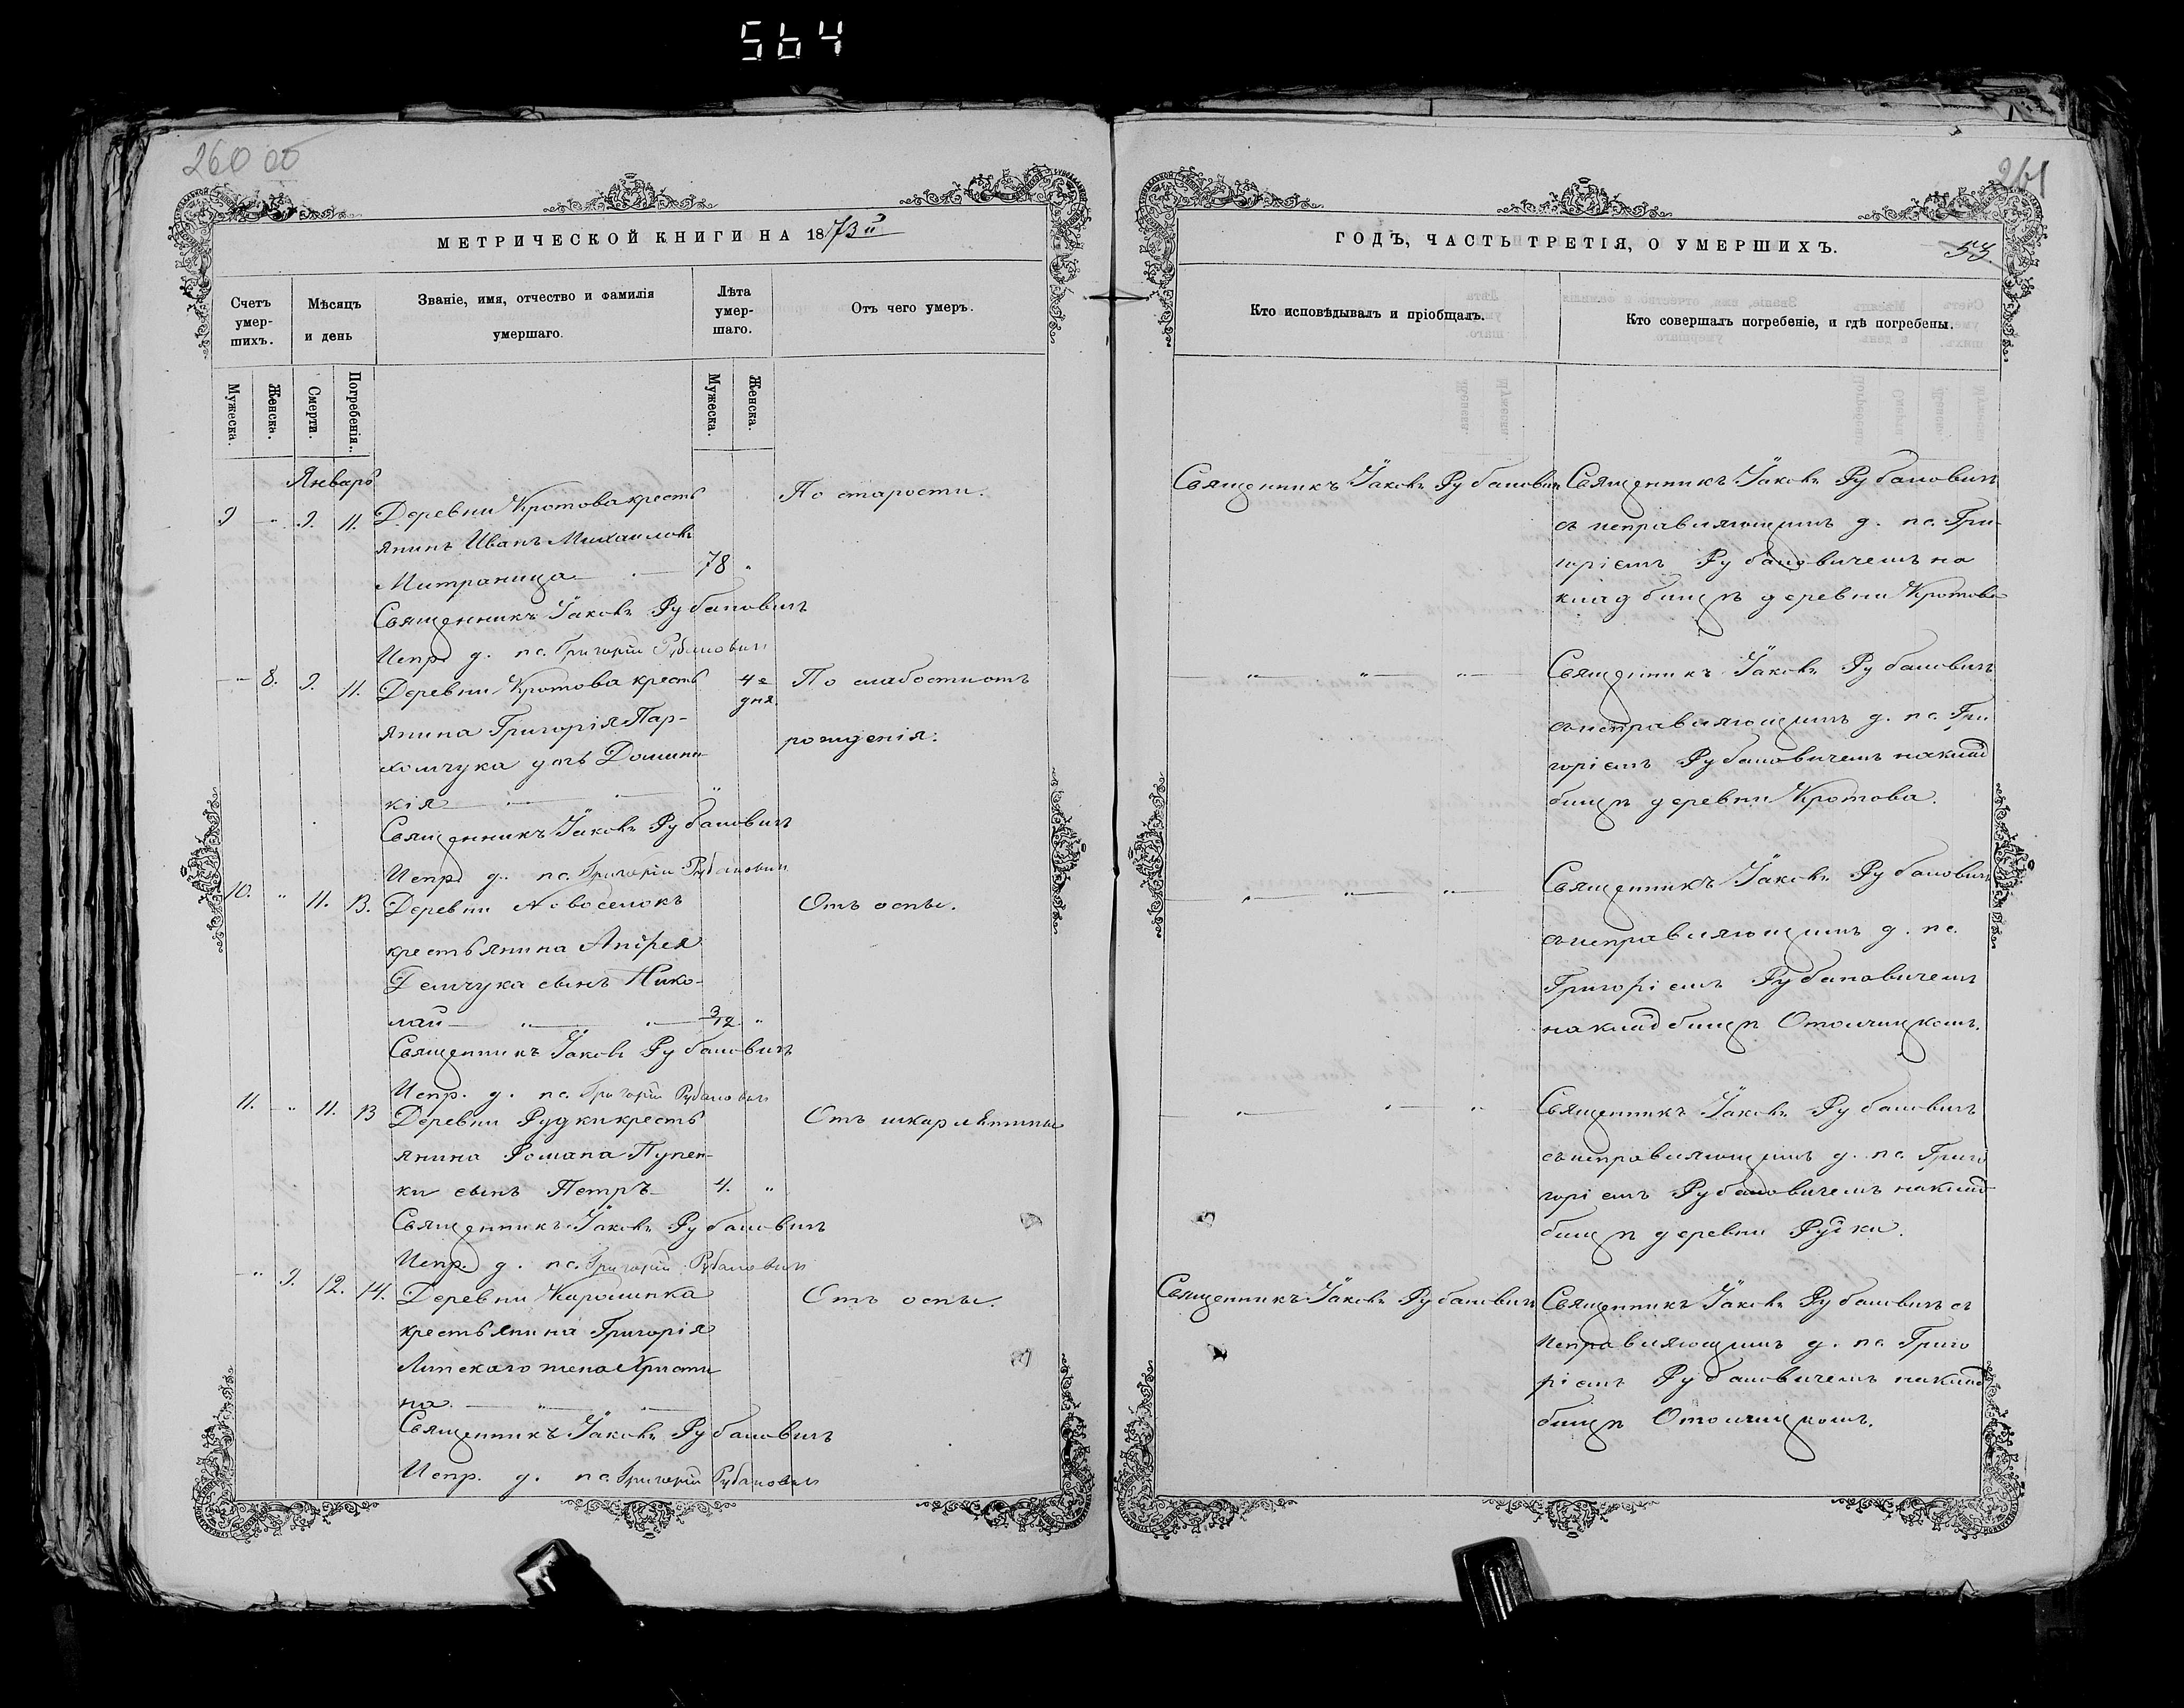 564
260 об
261
МЕТРИЧЕСКОЙ КНИГИ НА 1873й
Счетъ умер-шихъ.
Мѣсяцъ и день
Званіе, имя, отчество и фамилія умершаго.
Лѣта умер-шаго.
Отъ чего умеръ.
Мужеска.
Женска.
Смерти.
Погребенія.
Мужеска.
Женска.
Январь
9 " 9. 11. Деревни Кротова кресть По старости.
янинъ Иванъ Михаиловъ
Митраница — " — 78 "
Священникъ Іаковъ Рубановичъ
Испр. д. пс. Григорій Рубановичъ
— 8. 9. 11. Деревни Кротова кресть 4е дня По слабости отъ
янина Григорія Пар- рожденія.
хомчука дочь Домини-
кія — " — " — "
Священникъ Іаковъ Рубановичъ
Испр. д. пс. Григорій Рубановичъ
10. " 11. 13. Деревни Новоселокъ Отъ оспы.
крестьянина Андрея
Демчука сынъ Нико-
лай — " — " — 3/12 "
Священникъ Іаковъ Рубановичъ
Испр. д. пс. Григорій Рубановичъ
11. " 11. 13 Деревни Рудки кресть Отъ шкарлятины
янина Романа Пупен-
ки сынъ Петръ — 4. "
Священникъ Іаковъ Рубановичъ
Испр. д. пс. Григорій Рубановичъ
" 9. 12. 14. Деревни Каролинка Отъ оспы.
крестьянина Григорія
Липскаго жена Христи
на. — " — " —
Священникъ Іаковъ Рубановичъ
Испр. д. пс. Григорій Рубановичъ
ГОДЪ, ЧАСТЬ ТРЕТІЯ, О УМЕРШИХЪ.
53.
Кто исповѣдывалъ и пріобщалъ.
Кто совершалъ погребеніе, и гдѣ погребены.
Священникъ Іаковъ Рубановичъ Священникъ Іаковъ Рубановичъ
съ исправляющимъ д. пс. Гри-
горіемъ Рубановичемъ на
кладбищѣ деревни Кротова
— " — " — " — Священникъ Іаковъ Рубановичъ
съ исправляющимъ д. пс. Гри
горіемъ Рубановичемъ на клад
бищѣ деревни Кротова.
— " — " — " — Священникъ Іаковъ Рубановичъ
съ исправляющимъ д. пс.
Григоріемъ Рубановичемъ
на кладбищѣ Отолчицкомъ.
— " — " — " — Священникъ Іаковъ Рубановичъ
съ исправляющимъ д. пс. Григо
горіемъ Рубановичемъ на клад
бищѣ деревни Рудки.
Священникъ Іаковъ Рубановичъ Священникъ Іаковъ Рубановичъ съ
исправляющимъ д. пс. Григо
ріемъ Рубановичемъ на клад
бищѣ Отолчицкомъ.